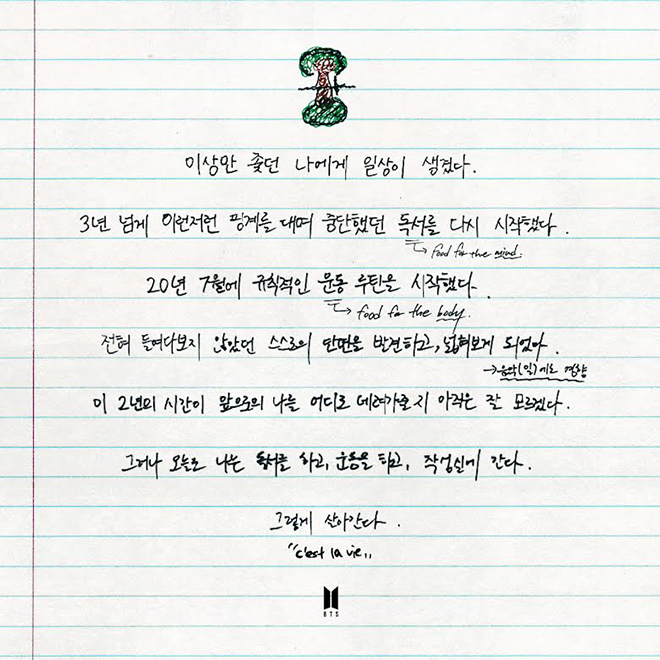 이상만 좇던 나에게 일상이 생겼다.
3년 넘게 이런저런 핑계를 대며 중단했던 독서를 다시 시작했다.
→ food for the mind.
20년 7월에 규칙적인 운동 루틴을 시작했다.
→ food for the body.
전혀 들여다보지 않았던 스스로의 단면을 발견하고, 넓혀보게 되었다.
→음악(일)에도 영향
이 2년의 시간이 앞으로의 나를 어디로 데려가줄지 아직은 잘 모르겠다.
그러나 오늘도 나는 독서를 하고, 운동을 하고, 작업실에 간다.
그렇게 살아간다.
"c'est la vie"
BTS